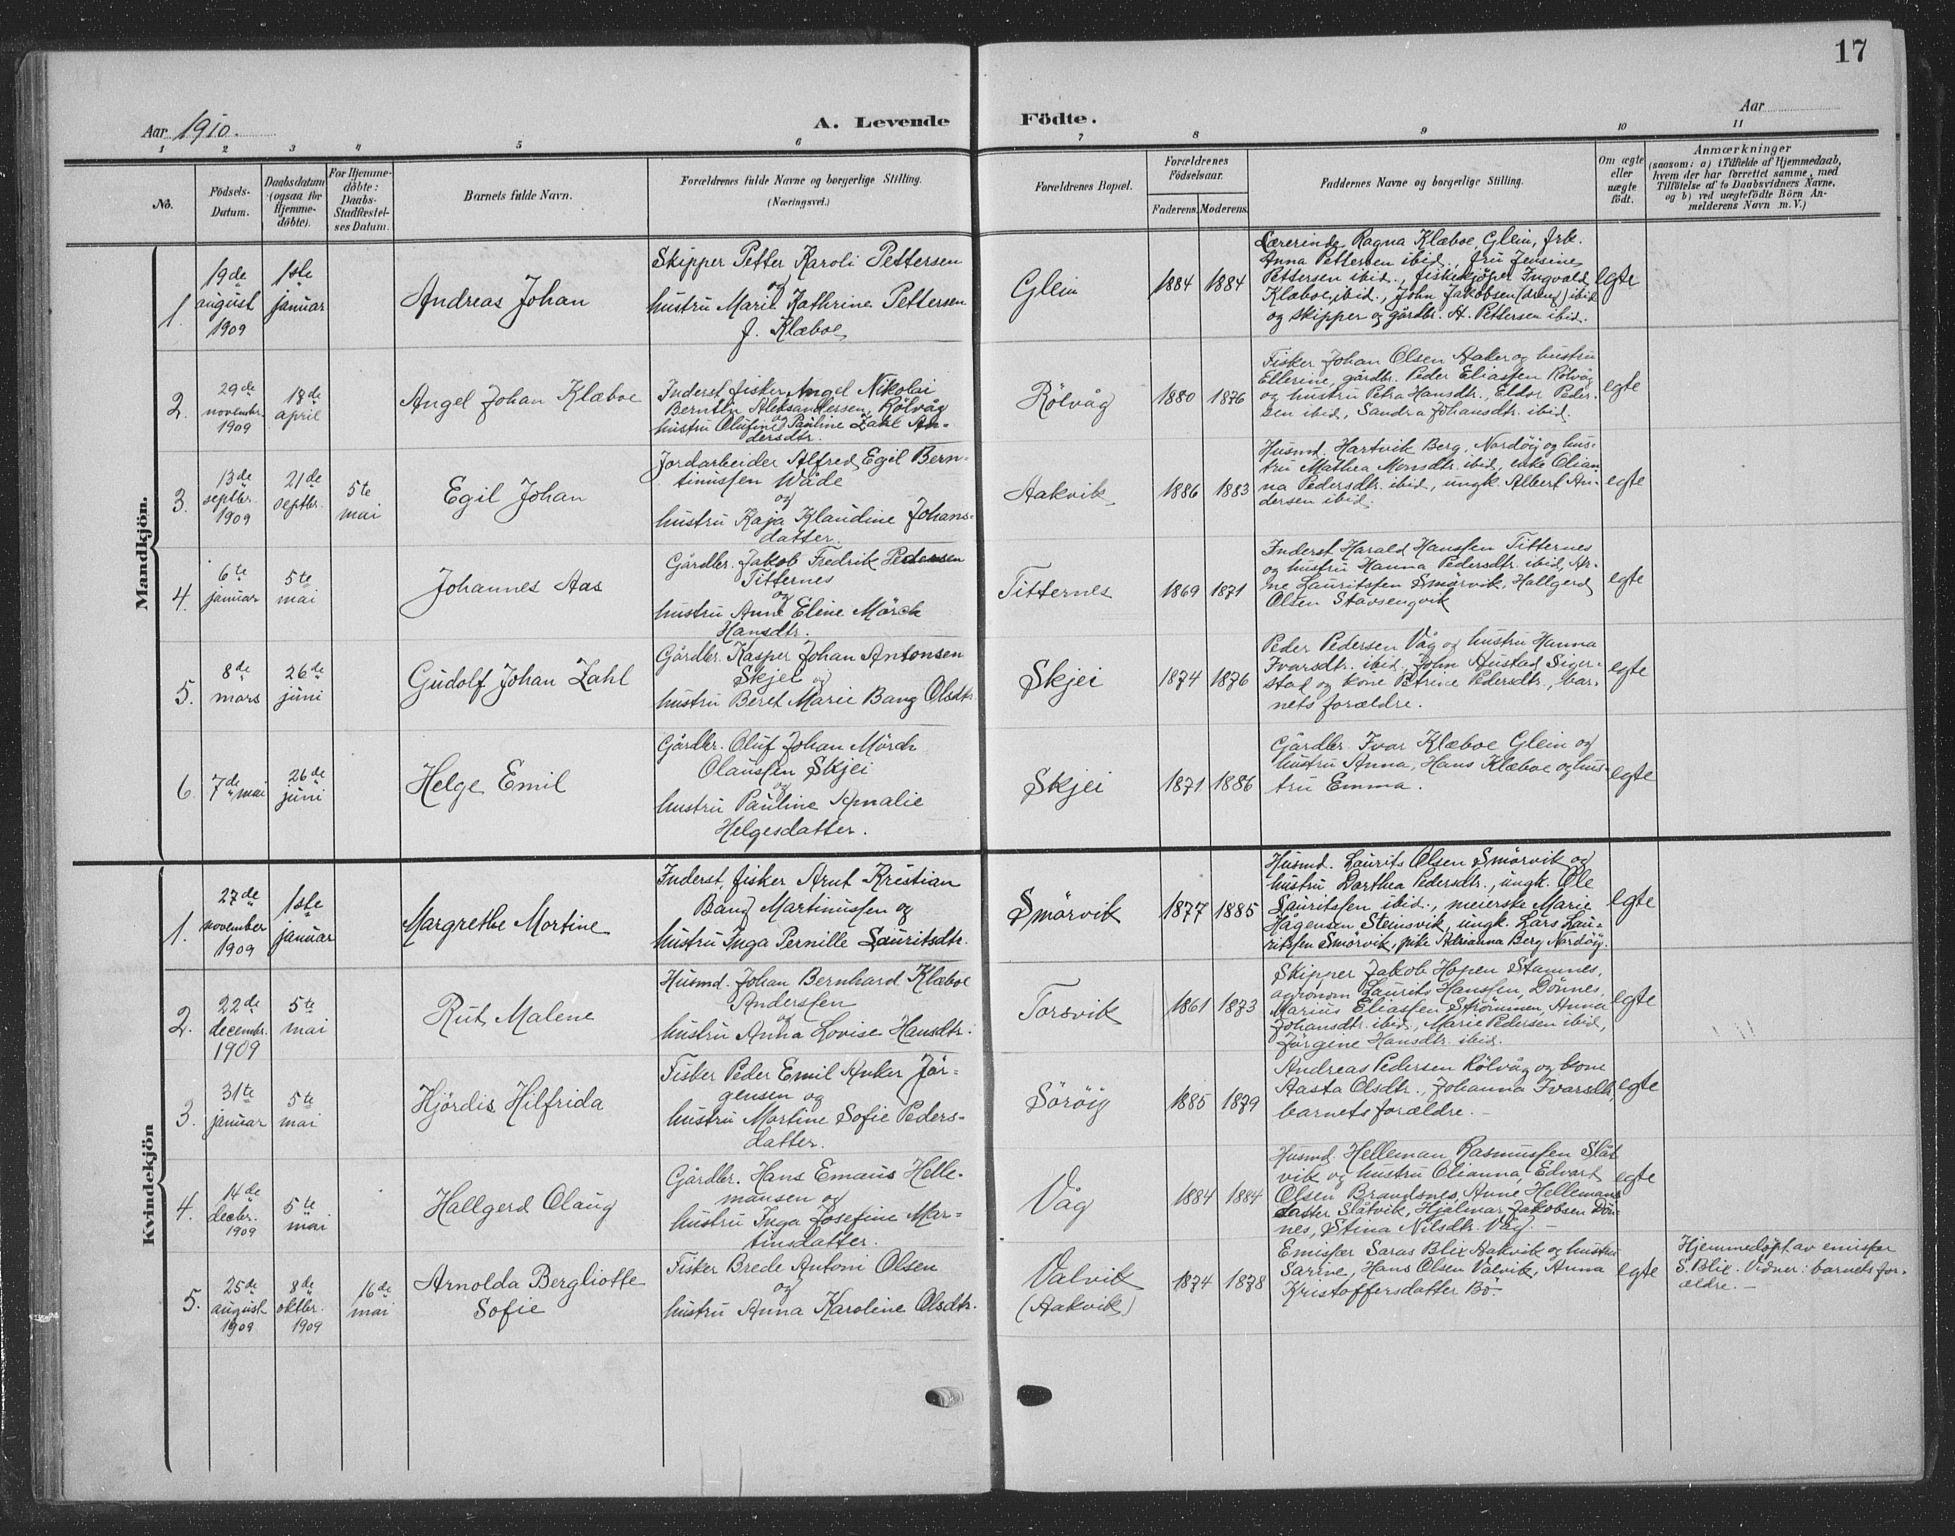 17
Aar 1910.
A. Levende Födte.
Aar
1 2 3 4 5 6 7 8 9 10 11
No.
Födsels-
Datum.
Daabsdatum
(ogsaa for
Hjemme-
döbte).
For Hjemme-
döbte:
Daabs-
Stadfæstel-
ses Datum.
Barnets fulde Navn.
Forældrenes fulde Navne og borgerlige Stilling.
(Næringsvei.)
Forældrenes Bopæl.
Forældrenes
Födselsaar.
Faderens. Moderens.
Faddernes Navne og borgerlige Stilling.
Om ægte
eller
uægte
födt.
Anmærkninger
(saasom: a) i Tilfælde af Hjemmedaab,
hvem der har forrettet samme, med
Tilföielse af to Daabsvidners Navne,
og b) ved uægtefödte Börn An-
melderens Navn m. V.)
Mandkjön.
1.
19de
august
1909
1ste
januar
Andreas Johan
Skipper Petter Karoli Pettersen
og
hustru Marit Kathrine Pettersen
f. Klæboe
Glein
1884 1884
Lærerinde Ragna Klæboe, Glein, frk.
Anna Pettersen ibid., fru Jensine
Pettersen ibid., fiskekjöper Ingvald
Klæboe ibid., John Jakobsen (dreng) ibid
og skipper og gårdbr. H. Pettersen ibid.
egte
2.
29de
novembr.
1909
18de
april
Angel Johan Klæboe
Inderst, fisker Angel Nikolai
Berntin Aleksandersen, Rölvåg
og
hustru Olufine Pauline Zahl An-
dersdtr.
Rölvåg
1880 1876
Fisker Johan Olsen Aaker og hustru
Ellerine, gårdbr. Peder Eliassen Rölvåg
og hustru Petra Hansdtr., Eldor Peder-
sen ibid, Sandra Johansdtr. ibid.
egte
3.
13de
septbr.
1909
21de
septbr.
5te
mai
Egil Johan
Jordarbeider Alfred Egil Bern-
tinussen Wåde
og
hustru Kaja Klaudine Johans-
datter.
Aakvik
1886 1883
Husmd. Hartvik Berg, Nordöig og hus-
tru Mathea Monsdtr. ibid, enke Olian-
na Pedersdtr. ibid, ungk. Albert An-
dersen ibid
egte
4.
6te
januar
5te
mai
Johannes Aas
Gårdbr. Jakob Fredrik Pedersen
Titternes
og
hustru Anne Eline Mörch
Hansdtr.
Titternes
1869 1871
Inderst Harald Hanssen Titternes
og hustru Hanna Pedersdtr. ibid, Ar-
ne Lauritssen Smörvik, Hallgerd
Olsen Stavsengvik
egte
5.
8de
mars
26de
juni
Gudolf Johan Zahl
Gårdbr. Kasper Johan Antonsen
Skjei og
hustru Beret Marie Bang Olsdtr.
Skjei
1874 1876
Peder Pedersen Våg og hustru Hanna
Ivarsdtr. ibid, John Austad Siger-
stad og kone Petrine Pedersdtr., bar-
nets forældre.
egte
6.
7de mai
26de
juni
Helge Emil
Gårdbr. Oluf Johan Mörch
Olaussen Skjei
og
hustru Pauline Amalie
Helgesdatter.
Skjei
1871 1886
Gårdbr. Ivar Klæboe Glein og
hustru Anna, Hans Klæboe og hus-
tru Emma.
egte
Kvindekjön
1.
27de
november
1909
1ste
januar
Margrethe Mortine
Inderst, fisker Arnt Kristian
Bang Martinussen og
hustru Inga Pernille Lauritsdtr.
Smörvik
1877 1885
Husmd. Laurits Olsen Smörvik og
hustru Dorthea Pedersdtr., ungk. Ole
Lauritssen ibid., meierske Marie
Hågensen Steinsvik, ungk. Lars Lau-
ritssen Smörvik, pike Adrianna Berg Nordöig.
egte
2.
22de
decembr.
1909
5te
mai
Rut Malene
Husmd. Johan Bernhard Klæboe
Anderssen
og
hustru Anna Lovise Hansdtr.
Torsvik
1861 1873
Skipper Jakob Hopen Stamnes,
agronom Laurits Hanssen, Dönnes,
Marius Eliassen Strömmen, Anna
Johansdtr. ibid, Marie Pedersen ibid,
Jörgene Hansdtr. ibid.
egte
3.
31te
januar
5te
mai
Hjördis Hilfrida
Fisker Peder Emil Anker Jör-
gensen og
hustru Martine Sofie Peders-
datter.
Söröig
1885 1879
Andreas Pedersen Rölvåg og kone
Aasta Olsdtr., Johanna Ivarsdtr,
barnets forældre.
egte
4.
14de
decbr.
1909
5te
mai
Hallgerd Olaug
Gårdbr. Hans Emaus Helle-
mansen og
hustru Inga Josefine Mar-
tinsdatter.
Våg
1884 1884
Husmd. Helleman Rasmussen Slåt-
vik og hustru Olianna, Edvart
Olsen Brandsnes, Anne Hellemans
datter Slåtvik, Hjalmar Jakobsen Dön-
nes, Stina Nilsdtr. Våg
egte
5.
25de
august
1909
8de
oktbr.
1909
16de
mai
Arnolda Bergliotte
Sofie
Fisker Brede Antoni Olsen
og
hustru Anna Karoline Olsdtr.
Valvik
(Aakvik)
1874 1878
Emissær Saras Blix Aakvik og hustru
Sarine, Hans Olsen Valvik, Anna
Kristoffersdatter Bö.
egte
Hjemmedöpt av emissær
S. Blix. Vidner: barnets for-
ældre.